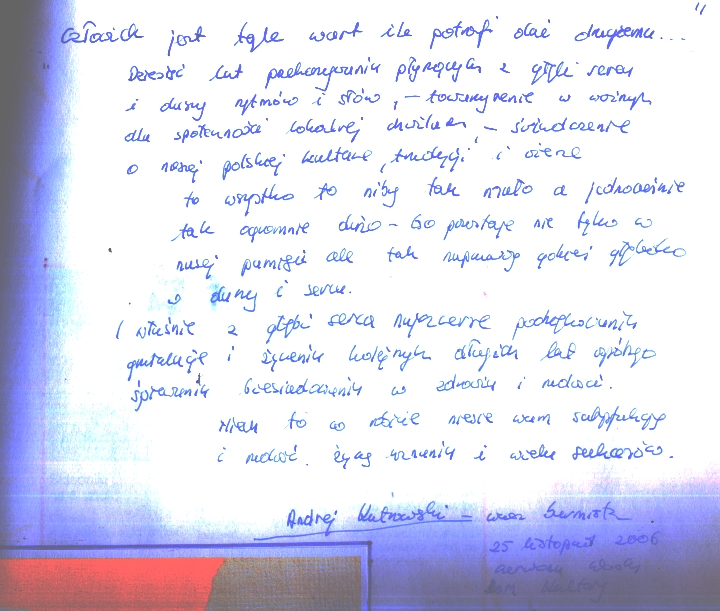 "
Człowiek jest tyle wart ile potrafi dać drugiemu...
Dziesięć lat przekazywania płynących z głębi serca
i duszy rytmów i słów, – towarzyszenie w ważnych
dla społeczności lokalnej chwilach, – świadczenie
o naszej polskiej kulturze, tradycji i wierze
to wszystko to niby tak mało a jednocześnie
tak ogromnie dużo – bo pozostaje nie tylko w
naszej pamięci ale tak naprawdę gdzieś głęboko
w duszy i sercu.
I właśnie z głębi serca najszczersze podziękowania
gratulacje i życzenia kolejnych długich lat
śpiewania biesiadowania w zdrowiu i radości.
Niech to co robicie niesie wam satysfakcję
i radość. Życzę uznania i wielu sukcesów.
Andrzej – wasz burmistrz
25 listopad 2006
Dom Kultury